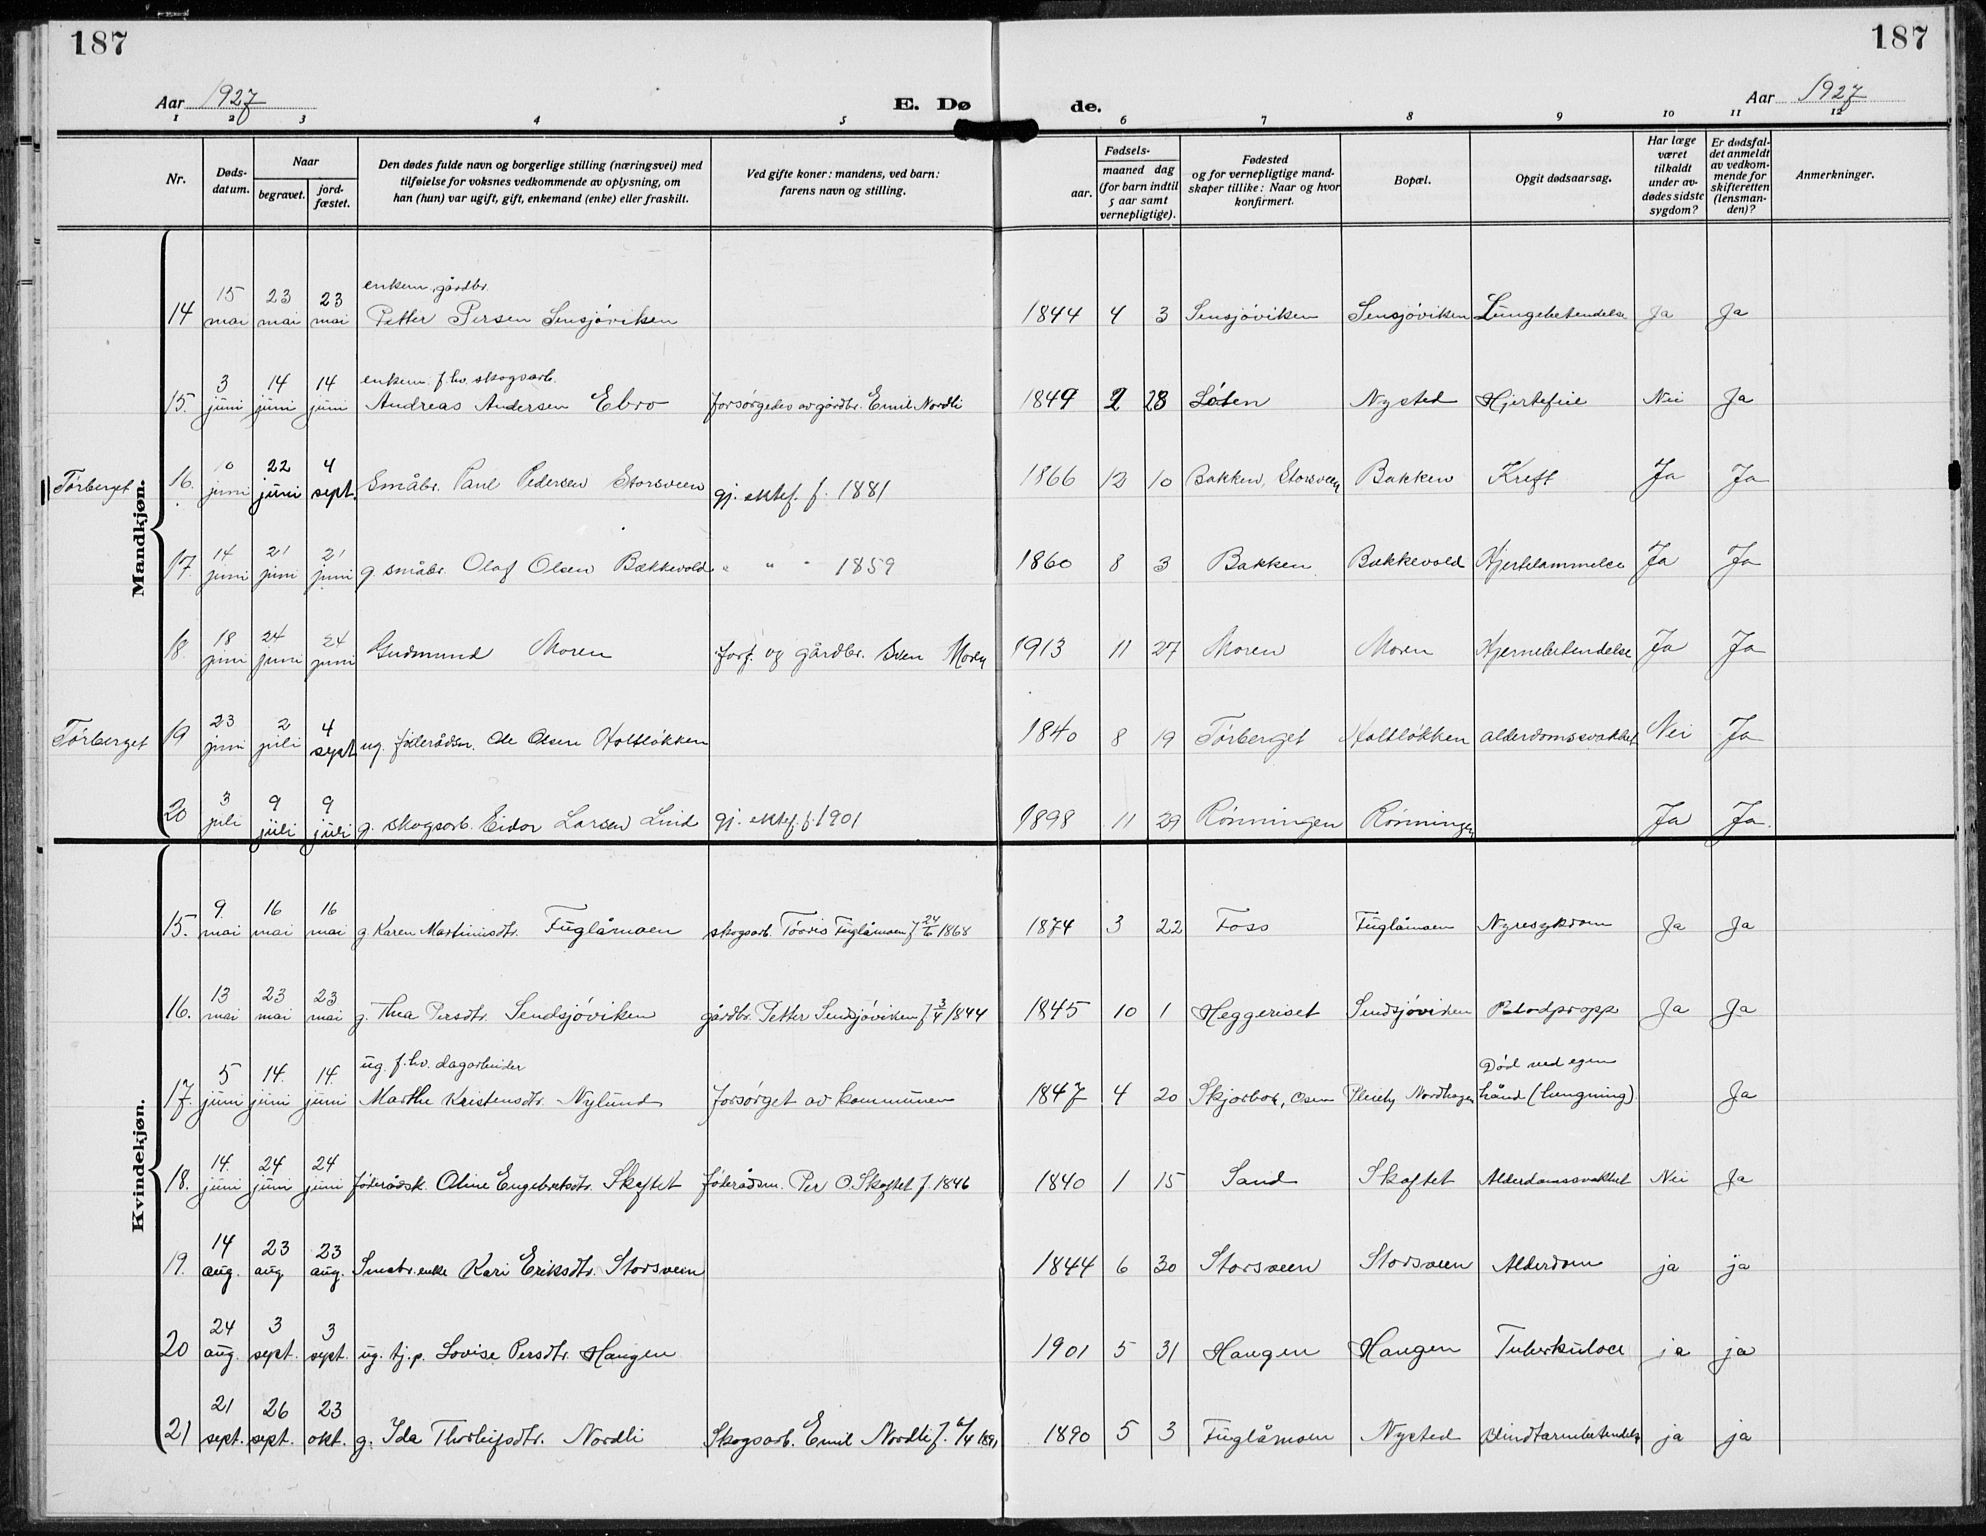 187 187
Aar 1927 E. Dø de. Aar 1927
1 2 3 4 5 6 7 8 9 10 11 12
Nr. Døds-datum. Naar begravet. jord-fæstet. Den dødes fulde navn og borgerlige stilling (næringsvei) med tilføielse for voksnes vedkommende av oplysning, om han (hun) var ugift, gift, enkemand (enke) eller fraskilt. Ved gifte koner: mandens, ved barn: farens navn og stilling. Fødsels- aar. maaned dag (for barn indtil 5 aar samt vernepligtige). Fødested og for vernepligtige mandskaper tillike: Naar og hvor konfirmert. Bopæl. Opgit dødsaarsag. Har læge været tilkaldt under avdødes sidste sygdom? Er dødsfaldet anmeldt av vedkommende for skifteretten (lensmanden)? Anmerkninger.
Mandkjøn.
14 15 mai 23 mai 23 mai enkem. gårdbr. Petter Persen Sensjøviken 1844 4 3 Sensjøviken Sensjøviken Lungebetendelse Ja Ja
15. 3 juni 14 juni 14 juni enkem. f.hv. skogsarb. Andreas Andersen Ebro forsørgedes av gårdbr. Emil Nordli 1849 2 28 Løten Nysted Hjertefeil Nei Ja
Tørberget 16. 10 juni 22 juni 4 sept. Småbr. Paul Pedersen Storsveen gj. ektef. f. 1881 1866 12 10 Bakken, Storsveen Bakken Kreft Ja Ja
17. 14 juni 21 juni 21 juni g. småbr. Olaf Olsen Bækkevold " " " 1859 1860 8 3 Bakken Bækkevold Hjertelammelse Ja Ja
18. 18 juni 24 juni 24 juni Gudmund Moren forf. og gårdbr. Sven Moren 1913 11 27 Moren Moren Hjernebetendelse Ja Ja
Tørberget 19 23 juni 2 juli 4 sept ug. føderådsm. Ole Olsen Holtløkken 1840 8 19 Tørberget Holtløkken alderdomssvakhet Nei Ja
20 3 juli 9 juli 9 juli g. skogsarb. Eidor Larsen Lind gj. ektef. f. 1901 1898 11 29 Rønningen Rønningen Ja Ja
Kvindekjøn.
15. 9. mai 16 mai 16 mai g. Karen Martinusdtr. Fuglåmoen skogsarb. Fuglåmoen f 24/6 1868 1874 3 22 Foss Fuglåmoen Nyresykdom Ja Ja
16. 13 mai 23 mai 23 mai g. Thea Persdtr. Sendsjøviken gårdbr. Petter Sendsjøviken f 3/4 1844 1845 10 1 Heggeriset Sendsjøviken Blodpropp Ja Ja
17. 5 juni 14. juni 14. juni ug. f.hv. dagarbeider Marthe Kristensdtr. Nylund forsørget av kommunen 1847 4 20 Osen Pleiehj. Nordhagen Død ved egen hånd (hengning) Ja
18. 14. juni 24 juni 24 juni føderådsk. Oline Engebretsdtr. Skaftet føderådsm. Per O. Skaftet f. 1846 1840 1 15 Sand Skaftet Alderdomssvakhet Nei Ja
19. 14 aug. 23 aug 23 aug. Småbr. enke Kari Eriksdtr. Storsveen 1844 6 30 Storsveen Storsveen Alderdom ja ja
20 24 aug. 3 sept. 3 sept. ug. tj.p. Lovise Persdtr. Haugen 1901 5 31 Haugen Haugen Tuberkulose ja ja
21 21 sept. 26 sept. 23 okt. g. Ida Thorleifsdtr. Nordli Skogsarb. Emil Nordli f. 6/4 1891 1890 5 3 Fuglåmoen Nysted Blindtarmbetendelse ja ja